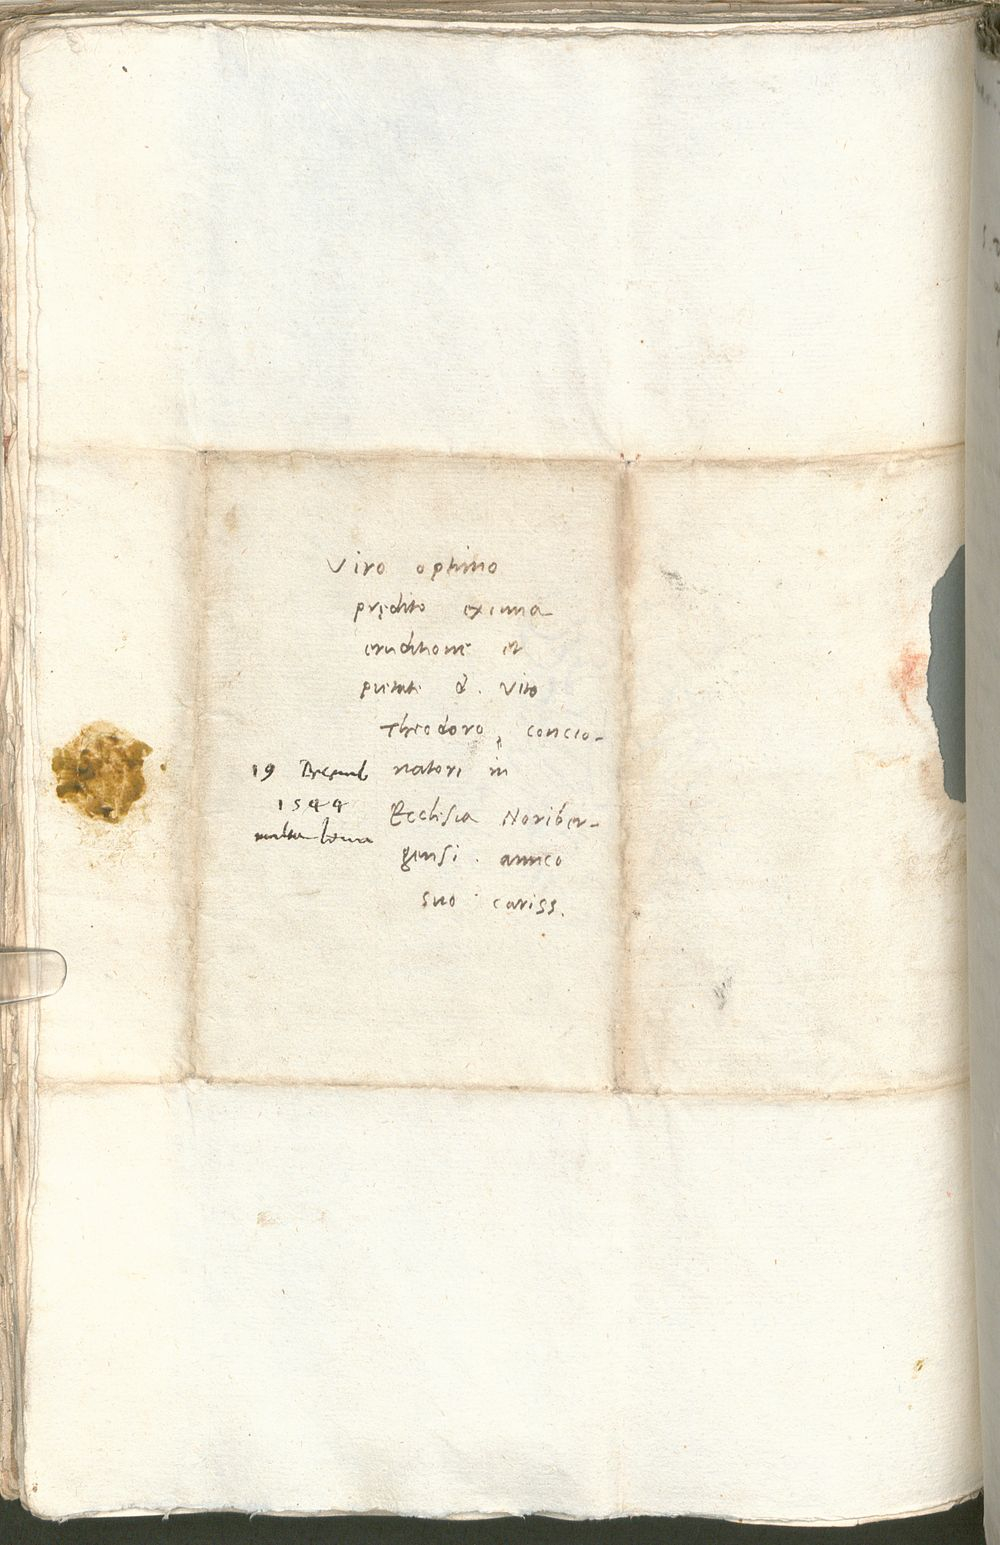 Viro optimo
prędito eximia
eruditione et
pietate d. Vito
Theodoro, concio-
natori in
Ecclesia Noriber-
gensi. amico
suo cariss.
19 Decemb
1544
multa bona